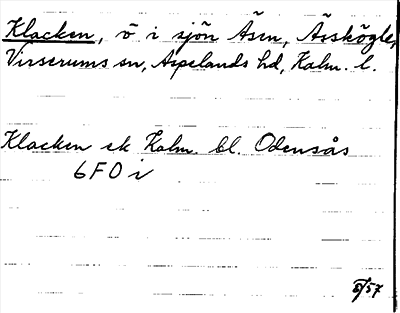 Klacken, ö i sjön Åsen, Åsskögle,
Virserums sn, Aspelands hd, Kalm. l.
Klacken ek Kalm. bl. Odensås
6F0i
8/57